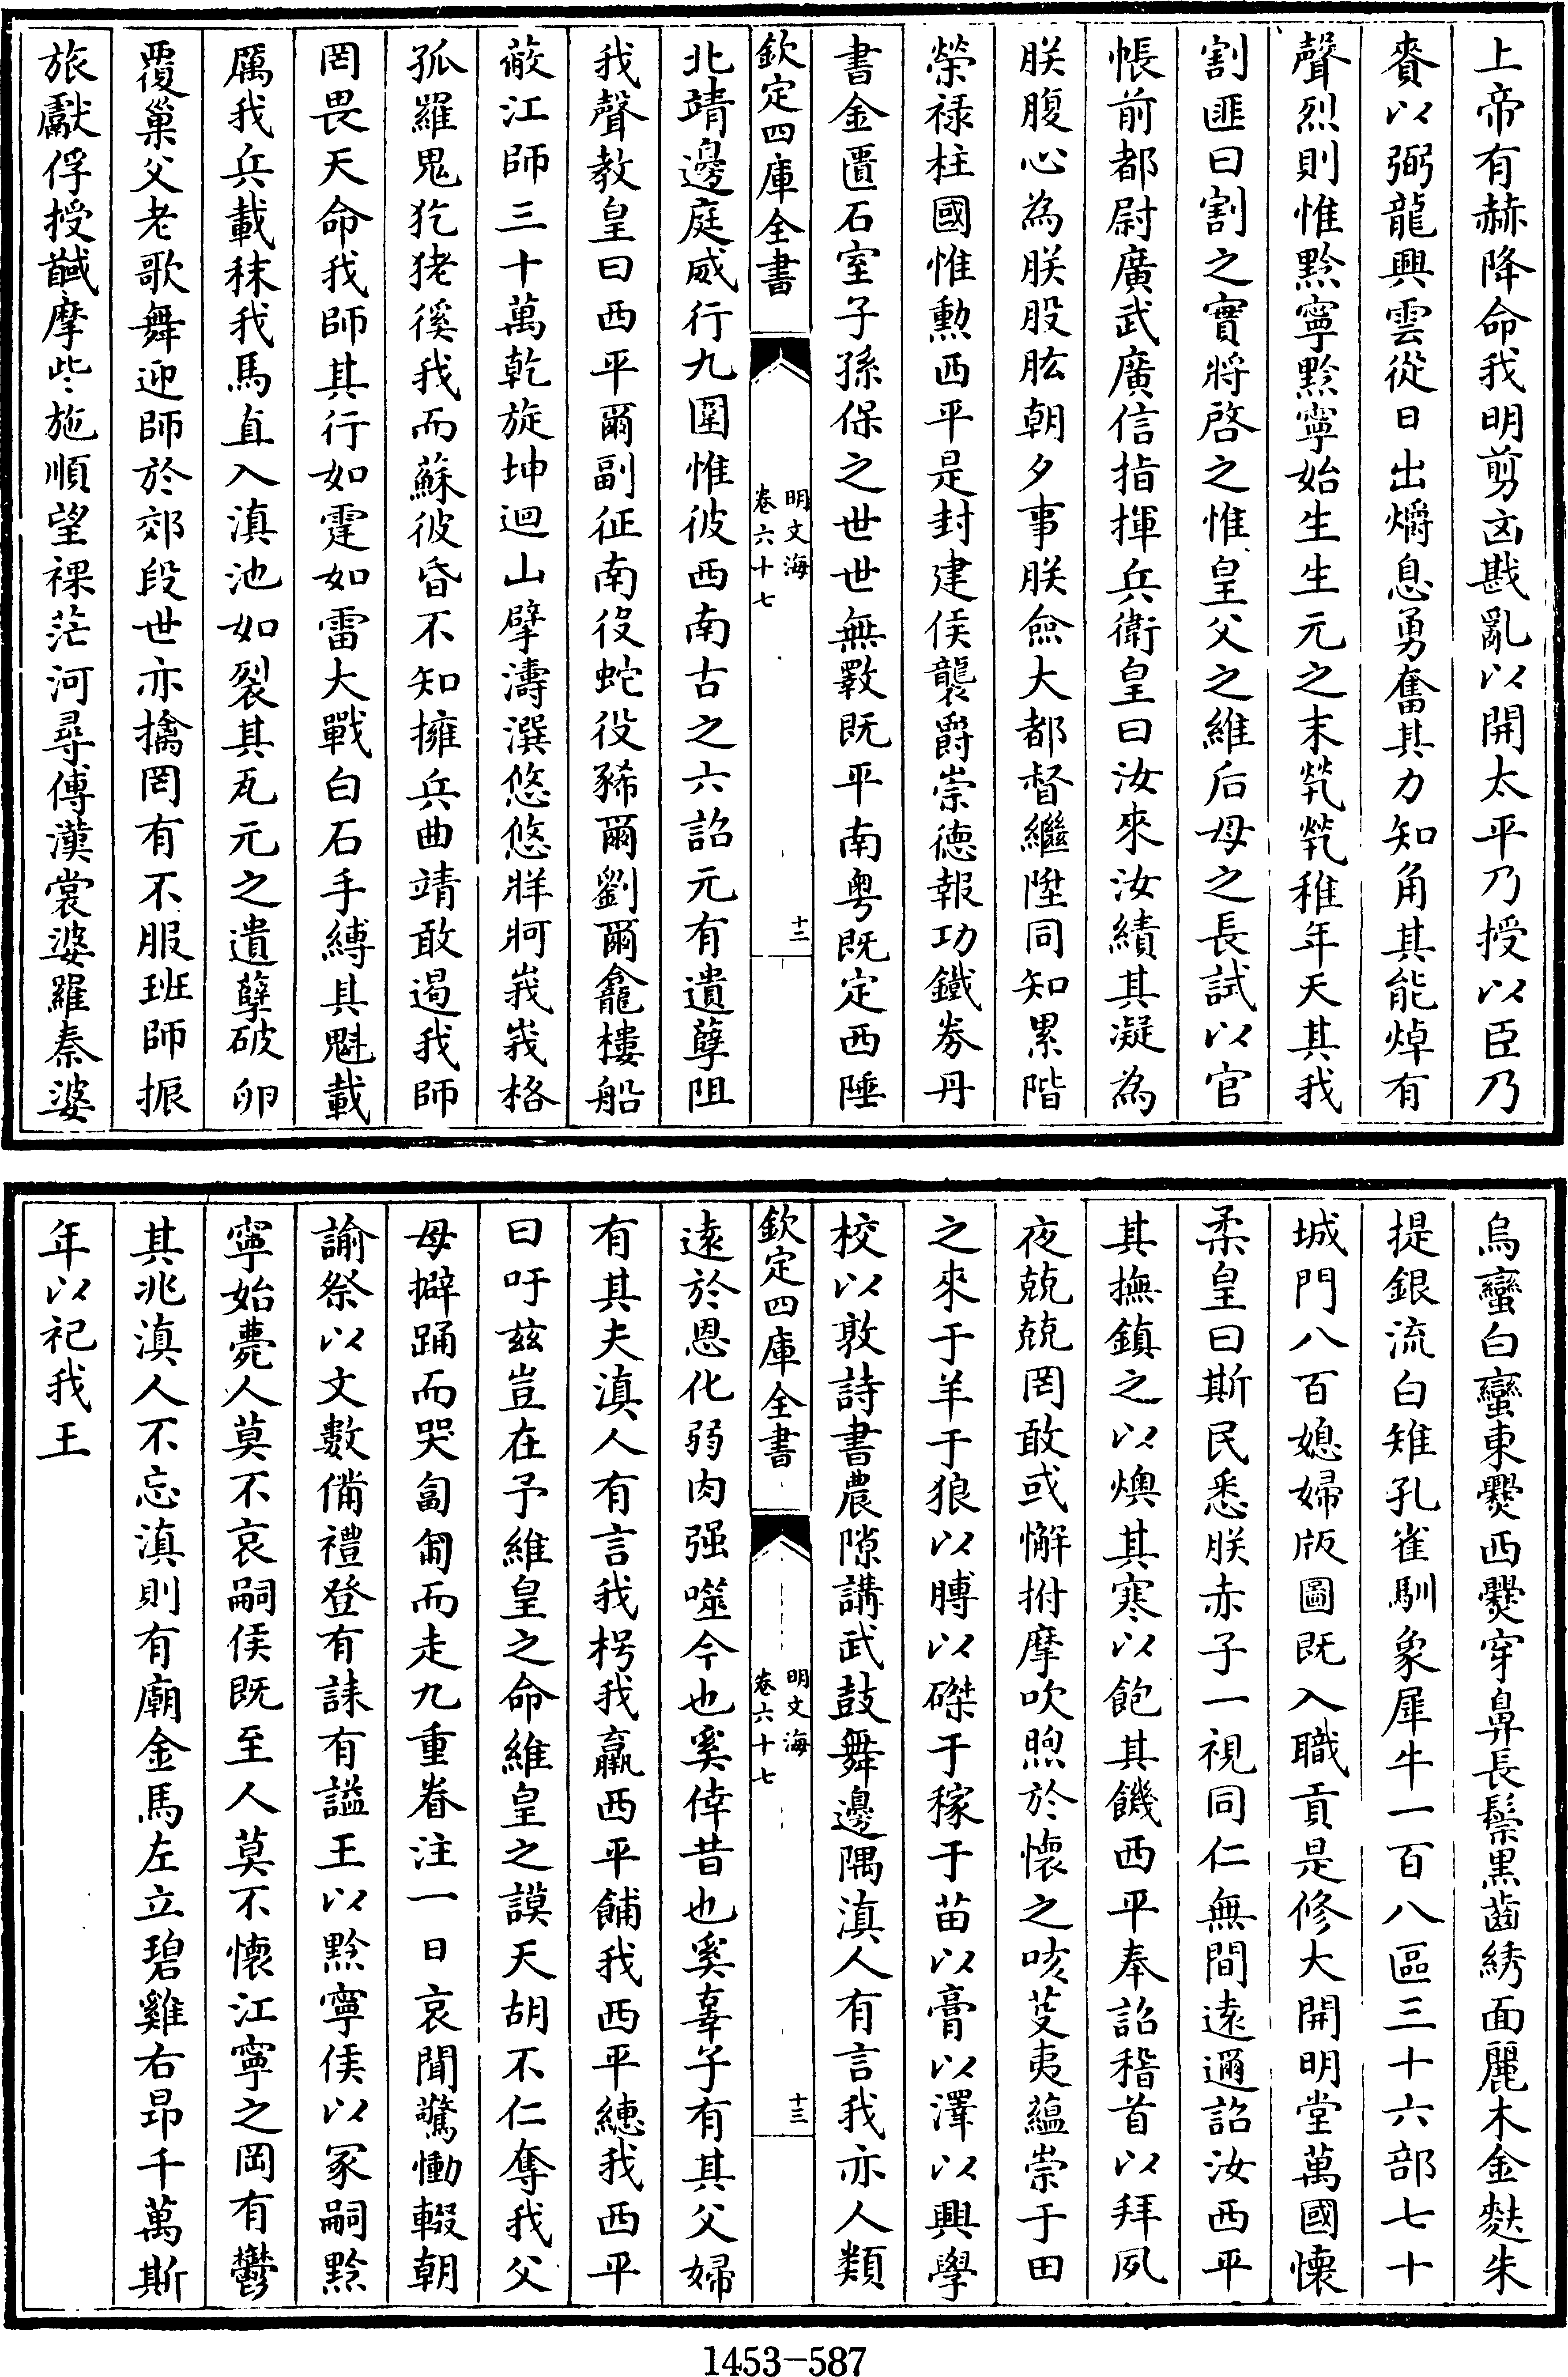 上帝有赫降命我明剪㐫戡亂以開太平乃授以臣乃
賚以弼龍興雲從日出爝息勇奮其力知角其能焯有
聲烈則惟黔寧黔寧始生生元之末煢煢稚年天其我
割匪曰割之實將啓之惟皇父之維后母之長試以官
帳前都尉廣武廣信指揮兵衛皇曰汝來汝績其凝為
朕腹心為朕股肱朝夕事朕僉大都督繼陞同知累階
榮禄柱國惟勲西平是封建侯襲爵崇德報功鐵券丹
書金匱石室子孫保之世世無斁既平南粤既定西陲
欽定四庫全書
明文海
卷六十七
十二
北靖邊庭威行九圍惟彼西南古之六詔元有遺孽阻
我聲教皇曰西平爾副征南役蛇役豨爾劉爾龕樓船
蔽江師三十萬乾旋坤迴山擘濤潠悠悠牂牁峩峩格
孤羅鬼犵狫徯我而蘇彼昏不知擁兵曲靖敢遏我師
罔畏天命我師其行如霆如雷大戰白石手縛其魁載
厲我兵載秣我馬直入滇池如裂其瓦元之遺孽破卵
覆巢父老歌舞迎師於郊段世亦擒罔有不服班師振
旅獻俘授馘摩些施順望祼茫河尋傳漢裳婆羅秦婆
烏蠻白蠻東爨西爨穿鼻長鬃黒齒綉面麗木金麩朱
提銀流白雉孔雀馴象犀牛一百八區三十六部七十
城門八百媳婦版圖既入職貢是修大開明堂萬國懐
柔皇曰斯民悉朕赤子一視同仁無間遠邇詔汝西平
其撫鎮之以燠其寒以飽其饑西平奉詔稽首以拜夙
夜兢兢罔敢或懈拊摩吹煦於懐之咳芟夷藴崇于田
之來于羊于狼以膊以磔于稼于苗以膏以澤以興學
校以敦詩書農隙講武鼓舞邊隅滇人有言我亦人類
欽定四庫全書
明文海
卷六十七
十三
遠於恩化弱肉强噬今也奚倖昔也奚辜子有其父婦
有其夫滇人有言我枵我羸西平餔我西平繐我西平
曰吁兹豈在予維皇之命維皇之謨天胡不仁奪我父
母擗踊而哭匍匐而走九重眷注一日哀聞驚慟輟朝
諭祭以文數備禮登有誄有諡王以黔寧侯以冢嗣黔
寧始薨人莫不哀嗣侯既至人莫不懐江寧之岡有鬱
其兆滇人不忘滇則有廟金馬左立碧雞右昂千萬斯
年以祀我王
1453-587